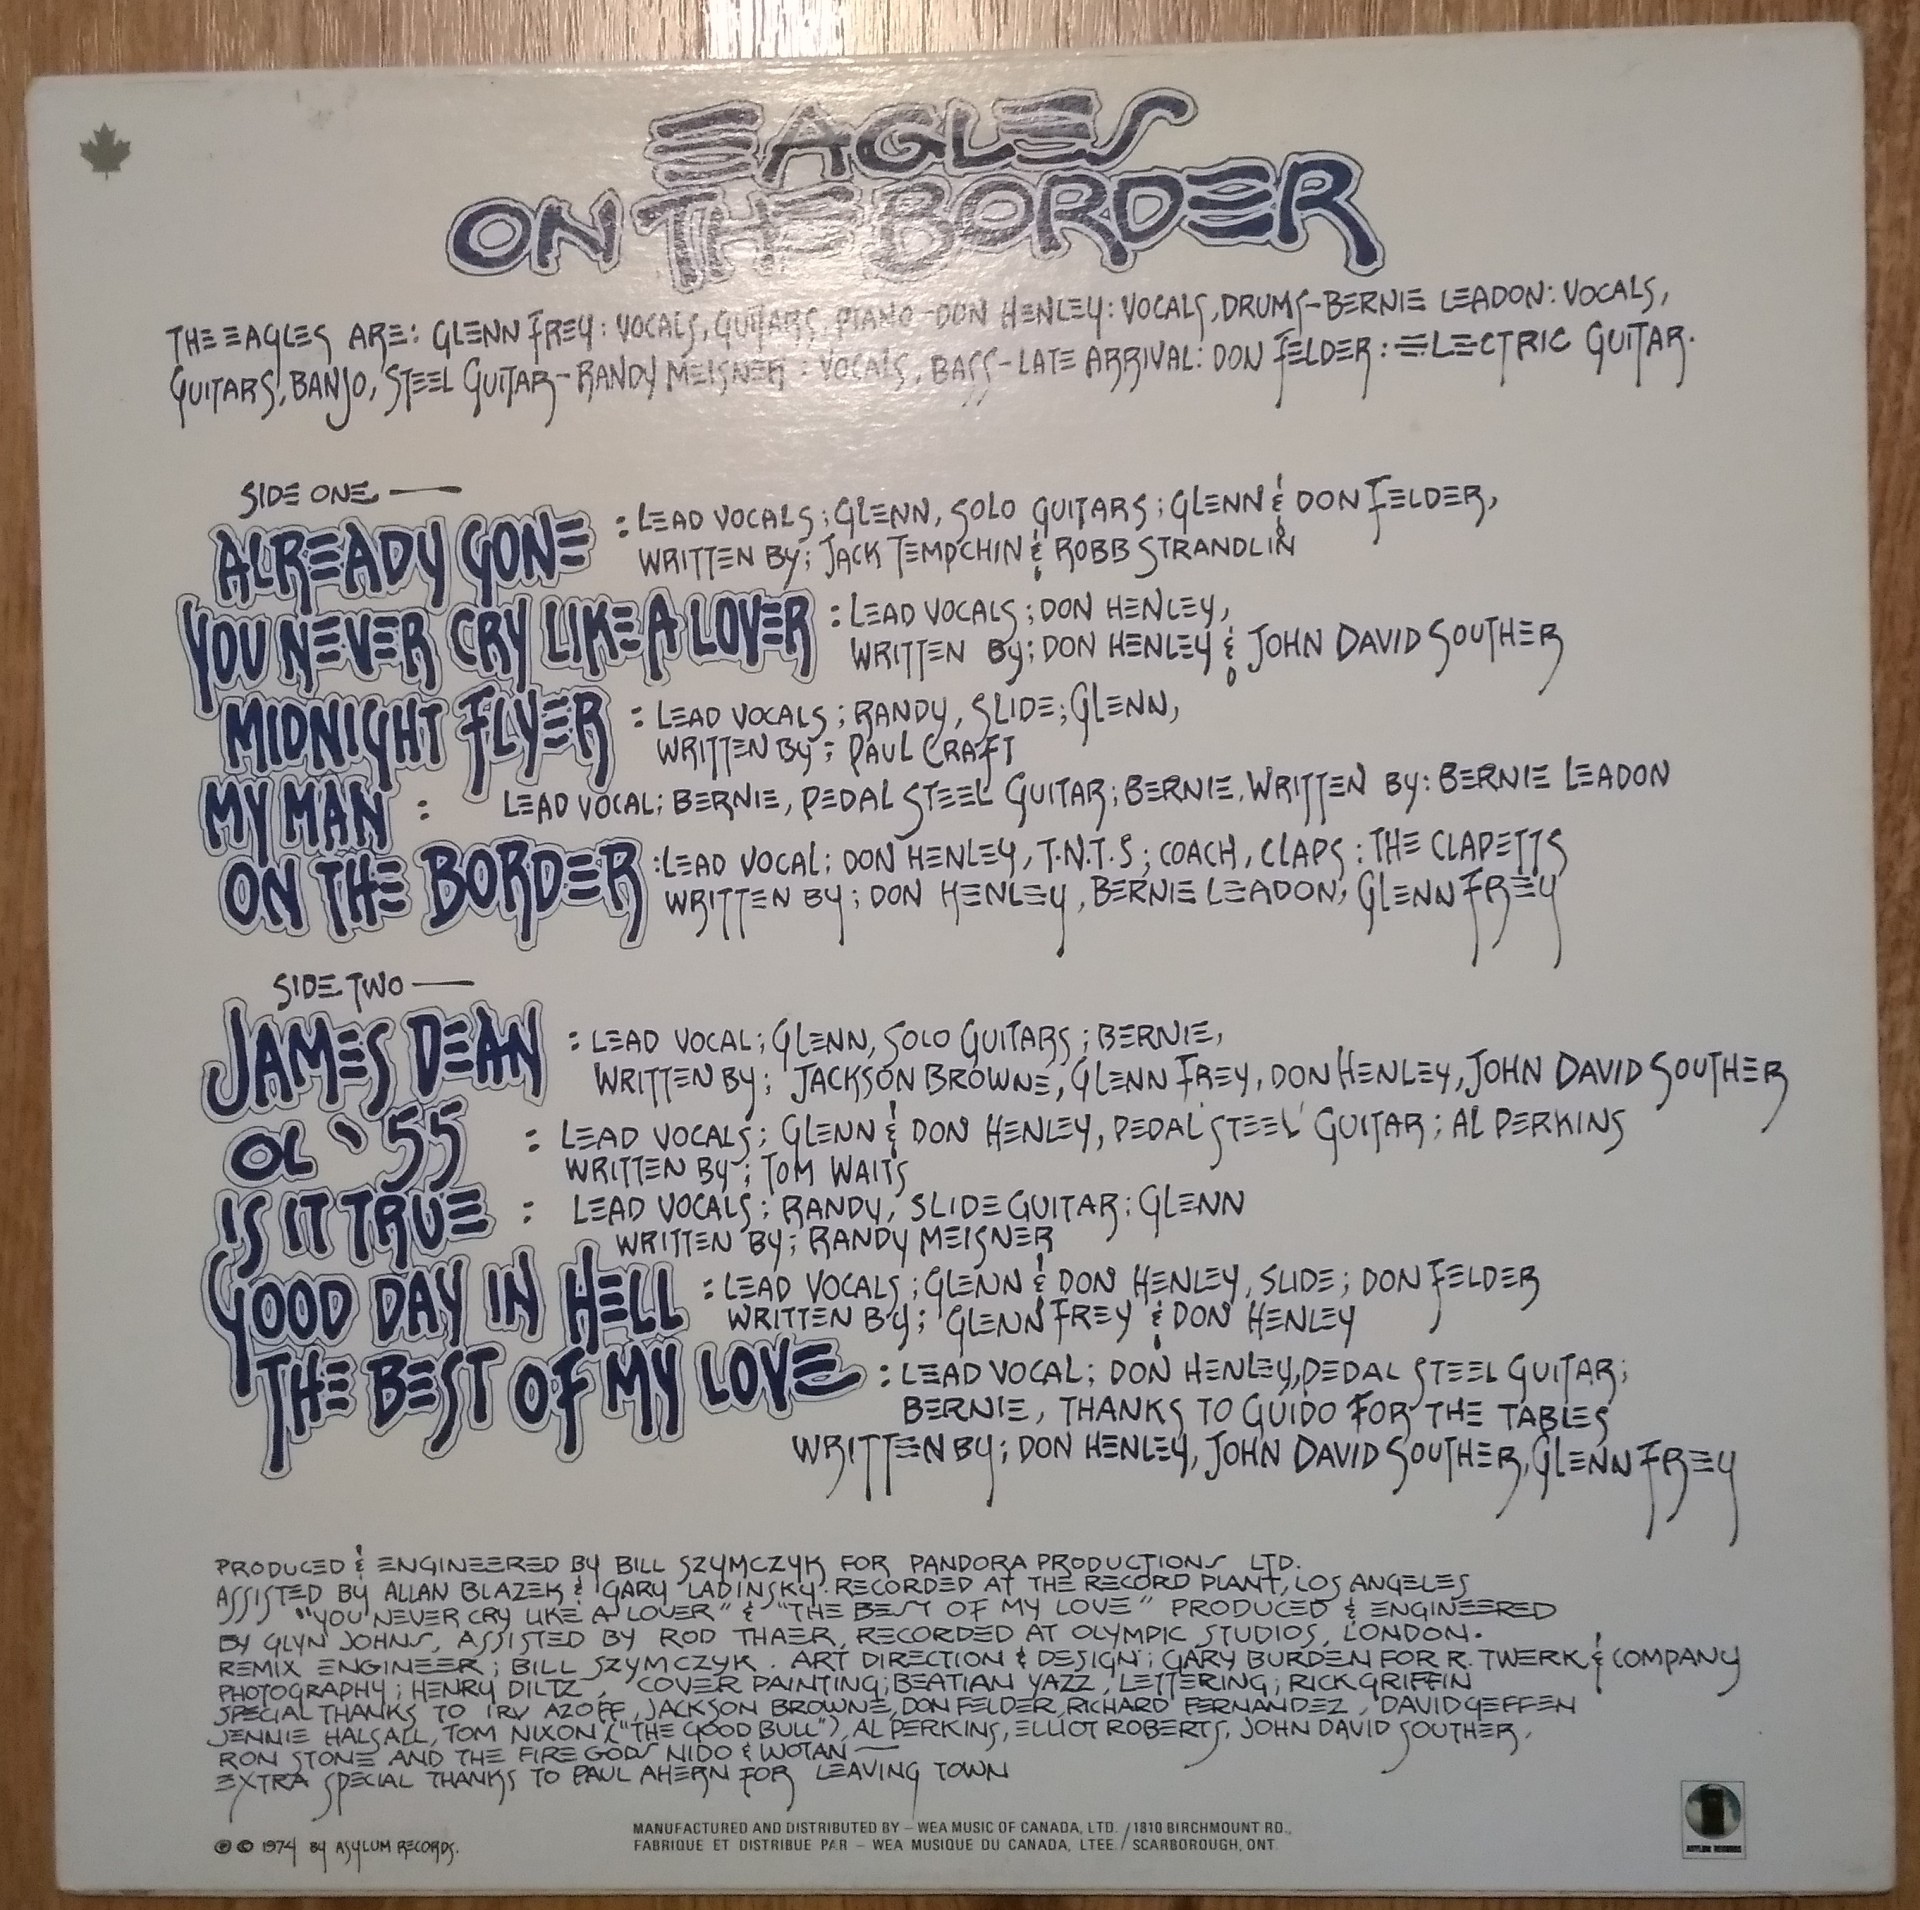 EAGLES
ON THE BORDER
THE EAGLES ARE: GLENN FREY: VOCALS, GUITARS, PIANO - DON HENLEY: VOCALS, DRUMS - BERNIE LEADON: VOCALS,
GUITARS, BANJO, STEEL GUITAR - RANDY MEISNER: VOCALS, BASS - LATE ARRIVAL: DON FELDER: ELECTRIC GUITAR.
SIDE ONE —
ALREADY GONE : LEAD VOCALS; GLENN, SOLO GUITARS; GLENN & DON FELDER,
WRITTEN BY; JACK TEMPCHIN & ROBB STRANDLIN
YOU NEVER CRY LIKE A LOVER : LEAD VOCALS; DON HENLEY,
WRITTEN BY; DON HENLEY & JOHN DAVID SOUTHER
MIDNIGHT FLYER : LEAD VOCALS; RANDY, SLIDE; GLENN,
WRITTEN BY; PAUL CRAFT
MY MAN : LEAD VOCAL; BERNIE, PEDAL STEEL GUITAR; BERNIE, WRITTEN BY: BERNIE LEADON
ON THE BORDER : LEAD VOCAL: DON HENLEY, T.N.T.S; COACH, CLAPS: THE CLAPETTS
WRITTEN BY; DON HENLEY, BERNIE LEADON, GLENN FREY
SIDE TWO —
JAMES DEAN : LEAD VOCAL; GLENN, SOLO GUITARS; BERNIE,
WRITTEN BY; JACKSON BROWNE, GLENN FREY, DON HENLEY, JOHN DAVID SOUTHER
OL '55 : LEAD VOCALS; GLENN & DON HENLEY, PEDAL STEEL GUITAR; AL PERKINS
WRITTEN BY; TOM WAITS
IS IT TRUE : LEAD VOCALS; RANDY, SLIDE GUITAR; GLENN
WRITTEN BY; RANDY MEISNER
GOOD DAY IN HELL : LEAD VOCALS; GLENN & DON HENLEY, SLIDE; DON FELDER
WRITTEN BY; GLENN FREY & DON HENLEY
THE BEST OF MY LOVE : LEAD VOCAL; DON HENLEY, PEDAL STEEL GUITAR;
BERNIE, THANKS TO GUIDO FOR THE TABLES
WRITTEN BY; DON HENLEY, JOHN DAVID SOUTHER, GLENN FREY
PRODUCED & ENGINEERED BY BILL SZYMCZYK FOR PANDORA PRODUCTIONS LTD.
ASSISTED BY ALLAN BLAZEK & GARY LADINSKY. RECORDED AT THE RECORD PLANT, LOS ANGELES
"YOU NEVER CRY LIKE A LOVER" & "THE BEST OF MY LOVE" PRODUCED & ENGINEERED
BY GLYN JOHNS, ASSISTED BY ROD THAER, RECORDED AT OLYMPIC STUDIOS, LONDON.
REMIX ENGINEER; BILL SZYMCZYK. ART DIRECTION & DESIGN; GARY BURDEN FOR R. TWERK & COMPANY
PHOTOGRAPHY; HENRY DILTZ, COVER PAINTING; BEATIAN YAZZ, LETTERING; RICK GRIFFIN
SPECIAL THANKS TO IRV AZOFF, JACKSON BROWNE, DON FELDER, RICHARD FERNANDEZ, DAVID GEFFEN
JENNIE HALSALL, TOM NIXON ("THE GOOD BULL"), AL PERKINS, ELLIOT ROBERTS, JOHN DAVID SOUTHER,
RON STONE AND THE FIRE GODS NIDO & WOTAN —
EXTRA SPECIAL THANKS TO PAUL AHERN FOR LEAVING TOWN
℗ © 1974 BY ASYLUM RECORDS.
MANUFACTURED AND DISTRIBUTED BY – WEA MUSIC OF CANADA, LTD. / 1810 BIRCHMOUNT RD.,
FABRIQUE ET DISTRIBUE PAR – WEA MUSIQUE DU CANADA, LTEE. / SCARBOROUGH, ONT.
ASYLUM RECORDS